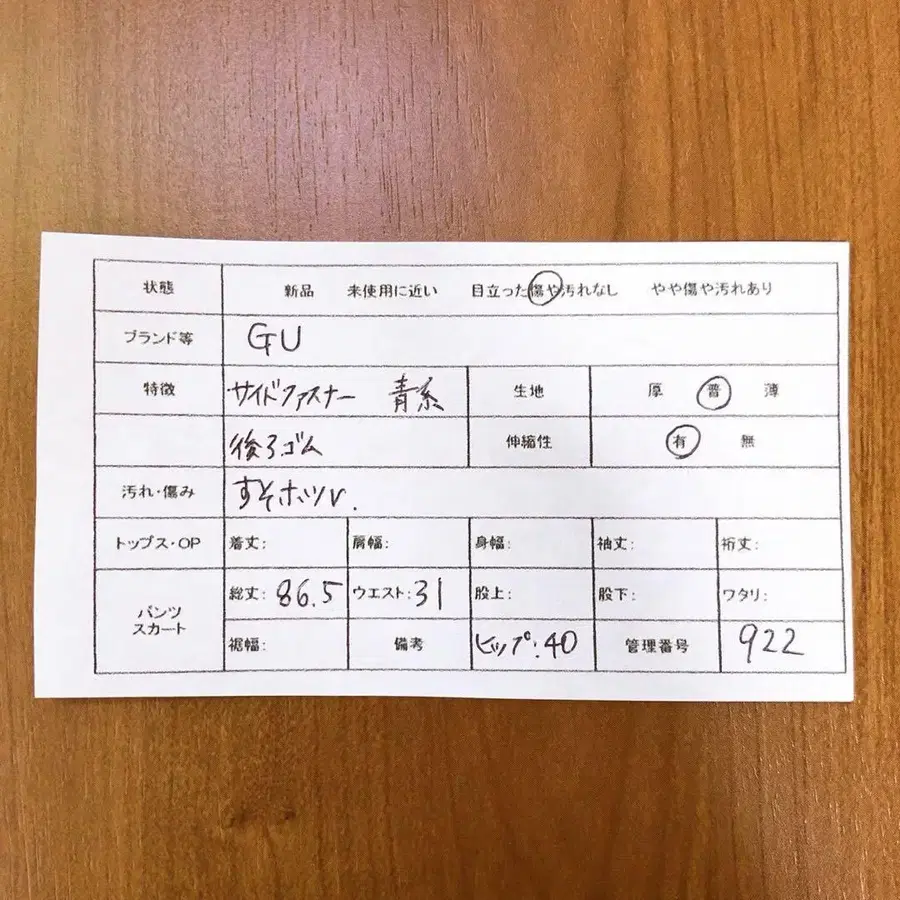 状態 新品 未使用に近い 目立った傷や汚れなし やや傷や汚れあり
ブランド等 GU
特徴 サイドファスナー 青系 生地 厚 普 薄
後ろゴム 伸縮性 有 無
汚れ・傷み すそホツレ.
トップス・OP 着丈: 肩幅: 身幅: 袖丈: 裄丈:
パンツ スカート 総丈: 86.5 ウエスト: 31 股上: 股下: ワタリ:
裾幅: 備考 ヒップ:40 管理番号 922